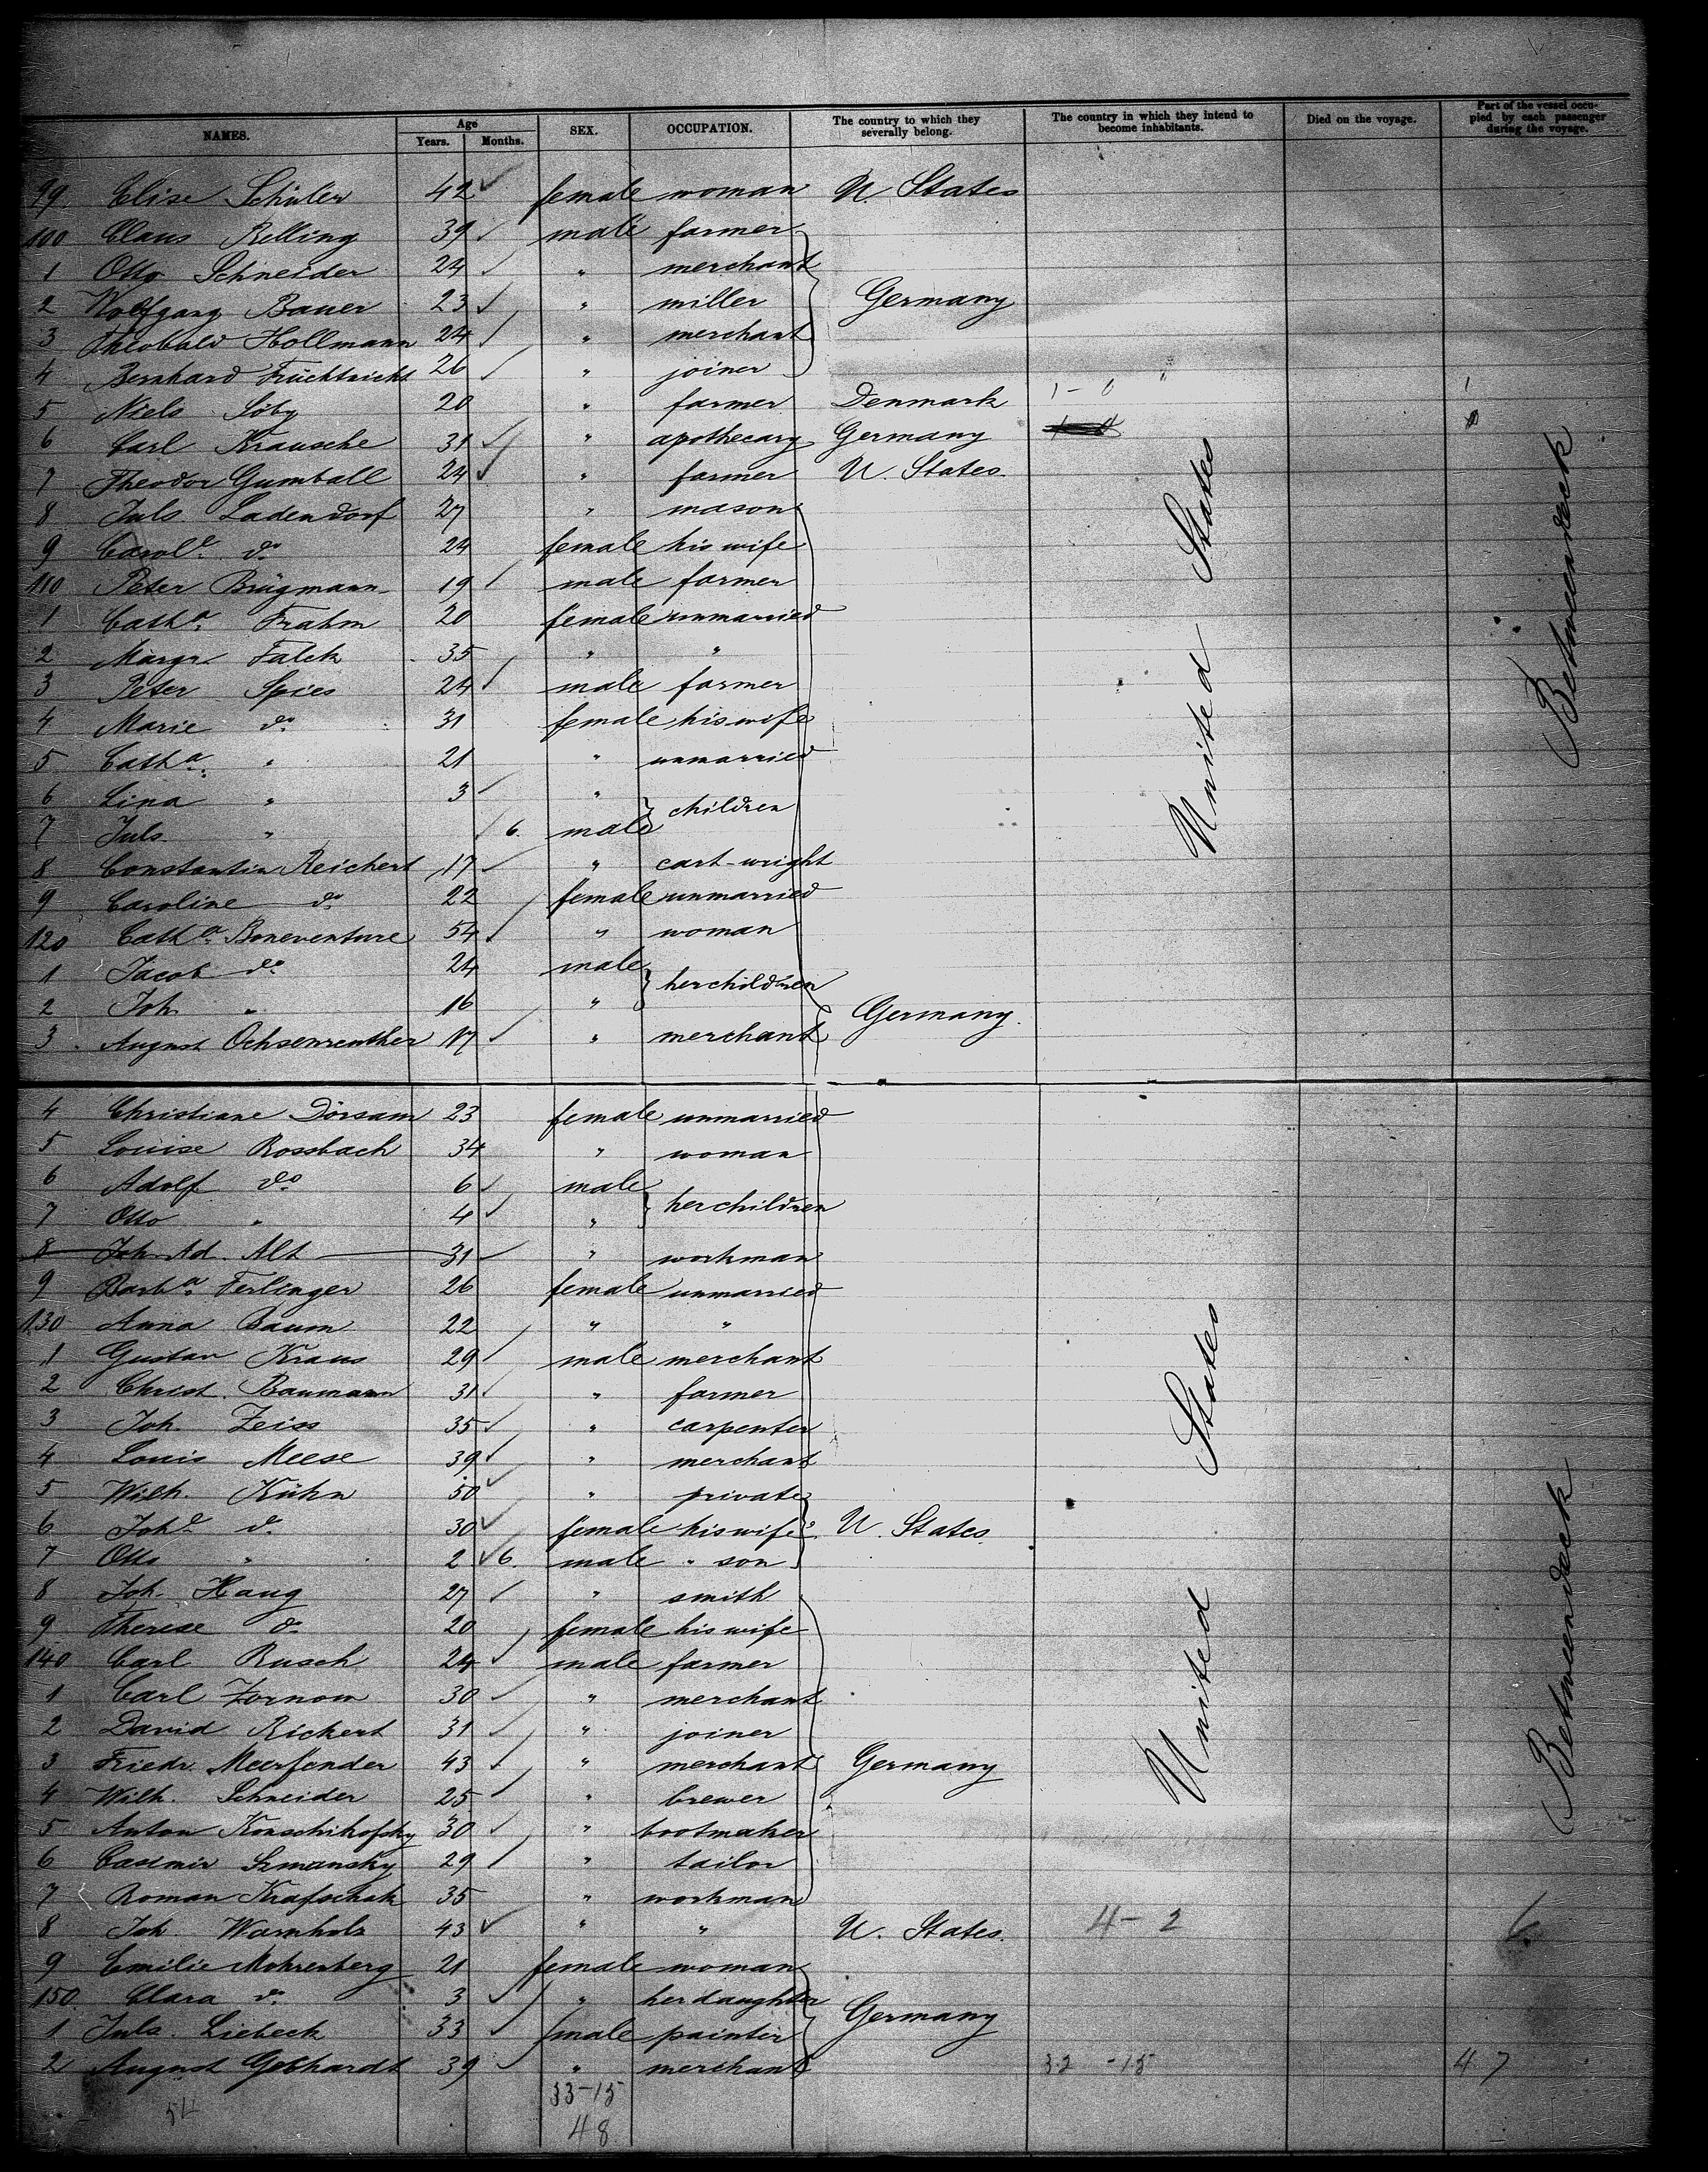 NAMES. Age Years. Months. SEX. OCCUPATION. The country to which they severally belong. The country in which they intend to become inhabitants. Died on the voyage. Part of the vessel occupied by each passenger during the voyage.
99 Elise Schüler 42 female woman U. States
100 Claus Relling 39 male farmer
1 Otto Schneider 24 " merchant
2 Wolfgang Bauer 23 " miller Germany
3 Theobald Hollmann 24 " merchant
4 Bernhard 26 " joiner
5 Niels Söby 20 " farmer Denmark
6 Carl Krausche 31 " apothecary Germany
7 Theodor Gumball 24 " farmer U. States
8 Juls. Ladendorf 27 " mason
9 Carole. do 24 female his wife
110 Peter Brügmann 19 male farmer
1 Catha. Frahm 20 female unmarried
2 Margr. Falck 35 " "
3 Peter Spies 24 male farmer
4 Marie do 31 female his wife
5 Catha. " 21 " unmarried
6 Lina " 3 " children
7 Juls. " 6. male
8 Constantin Reichert 17 " cart-wright
9 Caroline do 22 female unmarried
120 Catha. Boneventure 54 " woman
1 Jacob do 24 male her children
2 Joh. " 16 " Germany.
3 August Ochsenreuther 17 " merchant
United States
Betweendeck
4 Christiane Dörsam 23 female unmarried
5 Louise Rossbach 34 " woman
6 Adolf do 6 male her children
7 Otto " 4 "
8 Joh. Ad. Alt 31 " workman
9 Barba. Ferlinger 26 female unmarried
130 Anna Baum 22 " "
1 Gustav Kraus 29 male merchant
2 Christ. Baumann 31 " farmer
3 Joh. Zeiss 35 " carpenter
4 Louis Meese 39 " merchant
5 Wilh. Kühn 50 " private
6 Johe. do 30 female his wife U. States.
7 Otto " 2 6. male " son
8 Joh. Haug 27 " smith
9 Therese do 20 female his wife
140 Carl Rusch 24 male farmer
1 Carl Zornow 30 " merchant
2 David Richert 31 " joiner
3 Friedr. Meerfender 43 " merchant Germany
4 Wilh. Schneider 25 " brewer
5 Anton Konschikofsky 30 " bootmaker
6 Casimir Szmansky 29 " tailor
7 Roman Krafschak 35 " workman
8 Joh. Warnholz 43 " " U. States. 4-2 6
9 Emilie Mohrenberg 21 female woman
150. Clara do 3 " her daughter Germany
1 Juls. Liebeck 33 male painter
2 August Gebhardt 39 " merchant 32-15 47
United States
Betweendeck
33-15
48